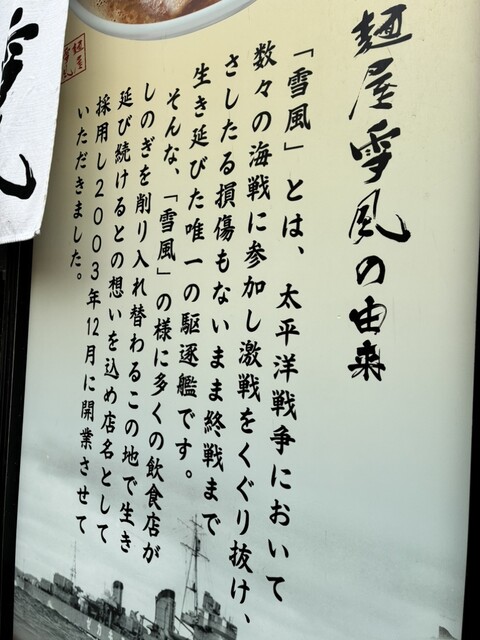 麺屋雪風の由来
「雪風」とは、太平洋戦争において
数々の海戦に参加し激戦をくぐり抜け、
さしたる損傷もないまま終戦まで
生き延びた唯一の駆逐艦です。
そんな、「雪風」の様に多くの飲食店が
しのぎを削り入れ替わるこの地で生き
延び続けるとの想いを込め店名として
採用し2003年12月に開業させて
いただきました。